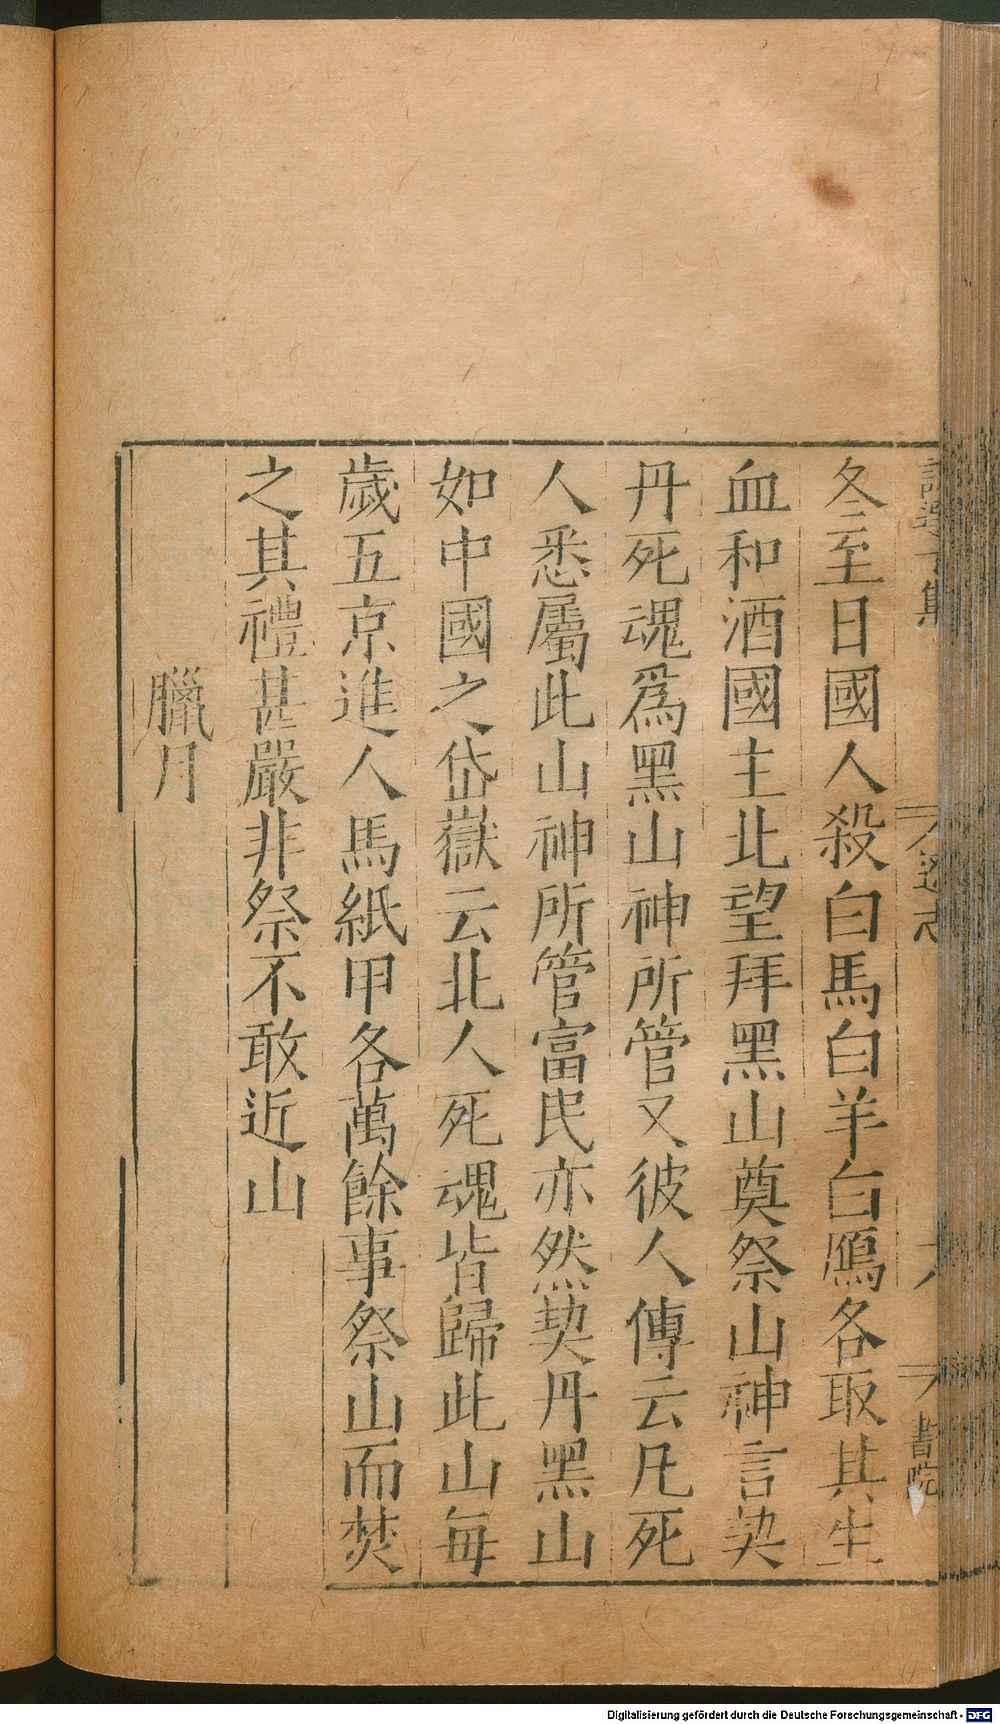 冬至日國人殺白馬白羊白鴈各取其生
血和酒國主北望拜黑山奠祭山神言契
丹死魂爲黑山神所管又彼人傳云凡死
人悉屬此山神所管富民亦然契丹黑山
如中國之岱嶽云北人死魂皆歸此山每
歲五京進人馬紙甲各萬餘事祭山而焚
之其禮甚嚴非祭不敢近山
臘月
書院
Digitalisierung gefördert durch die Deutsche Forschungsgemeinschaft - DFG